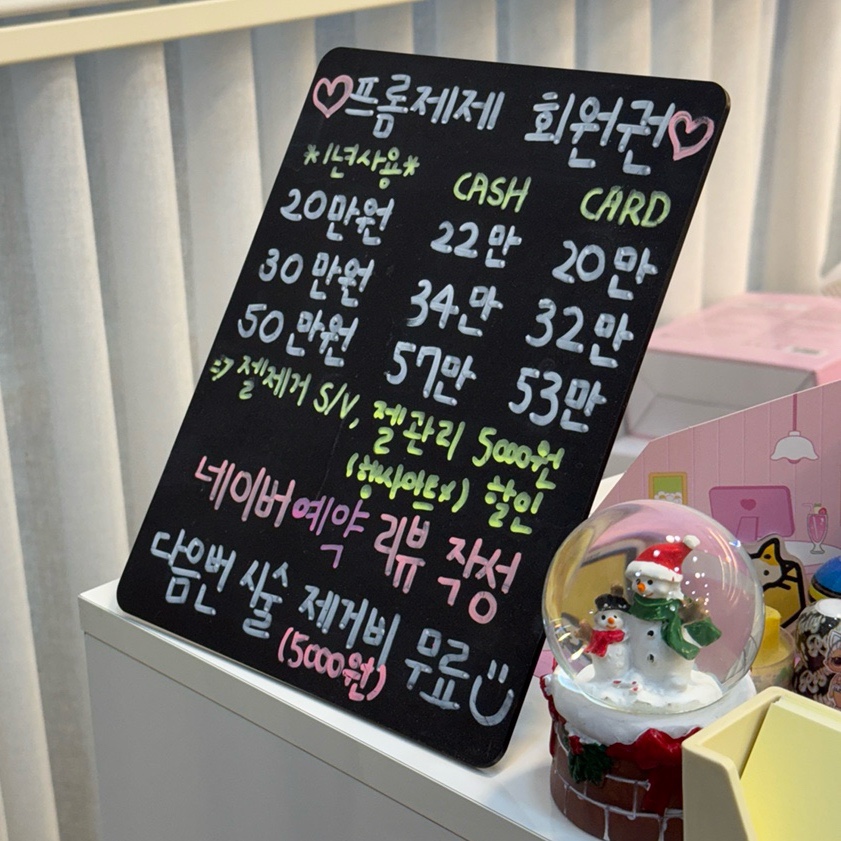 ♡프롬제제 회원권♡
*1년사용* CASH CARD
20만원 22만 20만
30만원 34만 32만
50만원 57만 53만
=> 젤제거 S/V, 젤관리 5000원
(행사아트x) 할인
네이버예약 리뷰 작성
다음번 시술 제거비 무료
(5000원)